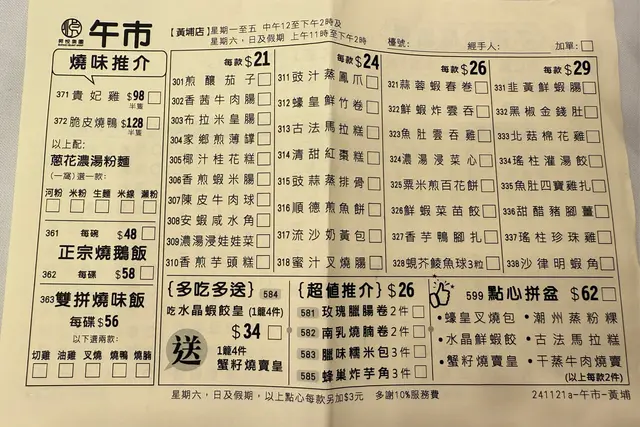 稻悅集團
午市
【黃埔店】
星期一至五 中午12至下午2時及
星期六，日及假期 上午11時至下午2時
檯號:
經手人:
加單:
燒味推介
371 貴妃雞 $98
半隻
372 脆皮燒鴨 $128
半隻
以上配:
蔥花濃湯粉麵
(一窩)選一款:
河粉 米粉 生麵 米線 瀨粉
361 每碗 $48
正宗燒鵝飯
362 每碟 $58
363 雙拼燒味飯
每碟 $56
以下選兩款:
切雞 油雞 叉燒 燒鴨 燒腩
每款 $21
301 煎釀茄子
302 香茜牛肉腸
303 布拉米皇腸
304 家鄉煎薄罉
305 椰汁桂花糕
306 香煎蝦米腸
307 陳皮牛肉球
308 安蝦咸水角
309 濃湯浸娃娃菜
310 香煎芋頭糕
每款 $24
311 豉汁蒸鳳爪
312 蠔皇鮮竹卷
313 古法馬拉糕
314 清甜紅棗糕
315 豉蒜蒸排骨
316 順德煎魚餅
317 流沙奶黃包
318 蜜汁叉燒腸
每款 $26
321 蒜蓉蝦春卷
322 鮮蝦炸雲吞
323 魚肚雲吞雞
324 濃湯浸菜心
325 粟米煎百花餅
326 鮮蝦菜苗餃
327 香芋鴨腳扎
328 蜆芥鯪魚球3粒
每款 $29
331 韭黃鮮蝦腸
332 黑椒金錢肚
333 北菇棉花雞
334 瑤柱灌湯餃
335 魚肚四寶雞扎
336 甜醋豬腳薑
337 瑤柱珍珠雞
338 沙律明蝦角
{多吃多送} 584
吃水晶蝦餃皇 (1籠4件)
$34
送
1籠4件
蟹籽燒賣皇
[超值推介] $26
581 玫瑰臘腸卷 2件
582 南乳燒腩卷 2件
583 臘味糯米包 3件
585 蜂巢炸芋角 3件
599 點心拼盆 $62
•蠔皇叉燒包 •潮州蒸粉粿
•水晶鮮蝦餃 •古法馬拉糕
•蟹籽燒賣皇 •干蒸牛肉燒賣
(以上每款2件)
星期六，日及假期，以上點心每款另加$3元 多謝10%服務費
241121a-午市-黃埔